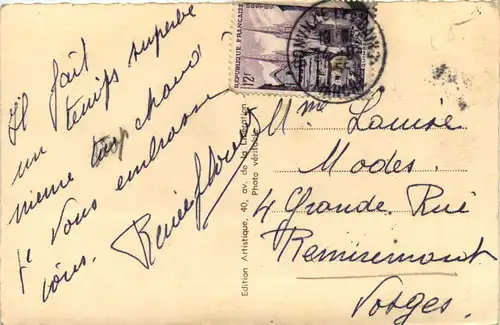 Il fait
un temps superbe
meme trop chaud
Je vous embrasse
tous.
Edition Artistique, 40, av. de la Libération
Photo véritable
REPUBLIQUE FRANÇAISE
12F
Mme Louise
Modes.
4 Grande Rue
Remiremont
Vosges.